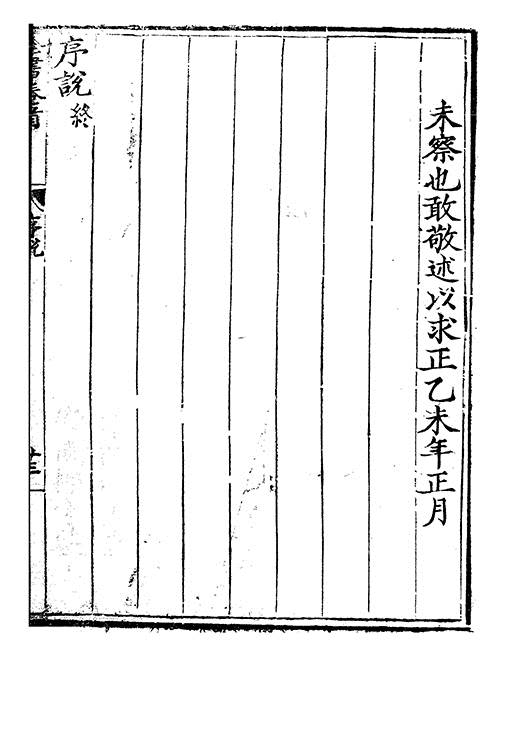 未察也敢敬述以求正乙未年正月
序說終
全書卷首
序說
廿三